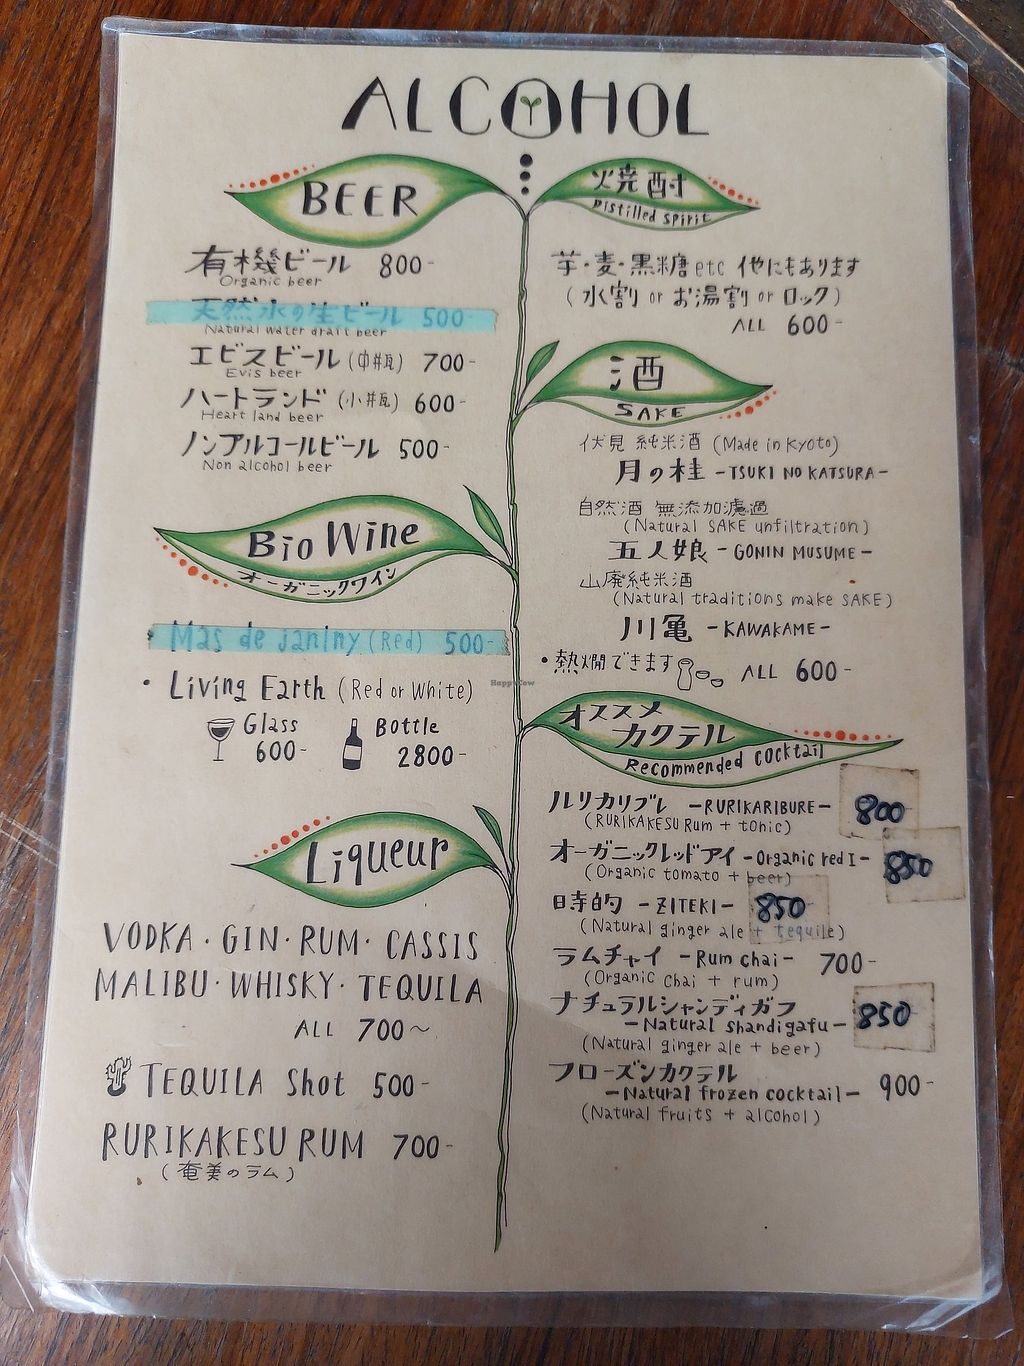 ALCOHOL
BEER
有機ビール 800-
Organic beer
天然水の生ビール 500-
Natural water draft beer
エビスビール (中瓶) 700-
Evis beer
ハートランド (小瓶) 600-
Heart land beer
ノンアルコールビール 500-
Non alcohol beer
Bio Wine
オーガニックワイン
Mas de janiny (Red) 500-
・Living Earth (Red or White)
Glass
600-
Bottle
2800-
Liqueur
VODKA・GIN・RUM・CASSIS
MALIBU・WHISKY・TEQUILA
ALL 700～
TEQUILA Shot 500-
RURIKAKESU RUM 700-
(奄美のラム)
焼酎
Distilled spirit
芋・麦・黒糖 etc 他にもあります
(水割 or お湯割 or ロック)
ALL 600-
酒
SAKE
伏見 純米酒 (Made in Kyoto)
月の桂 -TSUKI NO KATSURA-
自然酒 無添加濾過
(Natural SAKE unfiltration)
五人娘 - GONIN MUSUME -
山廃純米酒
(Natural traditions make SAKE)
川亀 -KAWAKAME-
・熱燗できます ALL 600-
オススメ
カクテル
Recommended cocktail
ルリカリブレ -RURIKARIBURE- 800
(RURIKAKESU Rum + tonic)
オーガニックレッドアイ -Organic red I- 850
(Organic tomato + beer)
時的 -ZITEKI- 850
(Natural ginger ale + tequile)
ラムチャイ -Rum chai- 700-
(Organic chai + rum)
ナチュラルシャンディガフ
-Natural shandigafu- 850
(Natural ginger ale + beer)
フローズンカクテル
-Natural frozen cocktail- 900-
(Natural fruits + alcohol)
HappyCow